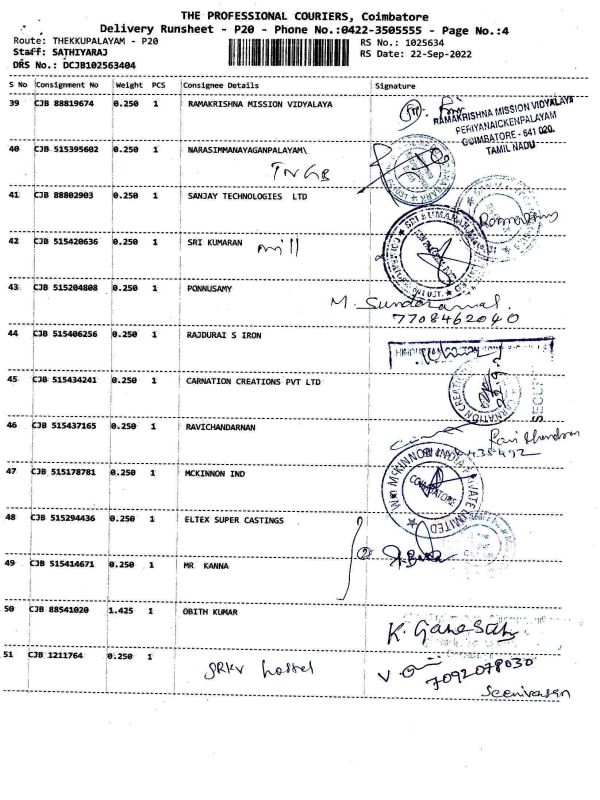 THE PROFESSIONAL COURIERS, Coimbatore
Delivery Runsheet - P20 - Phone No.:0422-3505555 - Page No.:4
Route: THEKKUPALAYAM - P20 RS No.: 1025634
Staff: SATHIYARAJ RS Date: 22-Sep-2022
DRS No.: DCJB102563404
S No Consignment No Weight PCS Consignee Details Signature
39 CJB 88819674 0.250 1 RAMAKRISHNA MISSION VIDYALAYA
RAMAKRISHNA MISSION VIDYALAYA
PERIYANAICKENPALAYAM
COIMBATORE - 641 020.
TAMIL NADU
40 CJB 515395602 0.250 1 NARASIMMANAYAGANPALAYAM\
TNGB
41 CJB 88802903 0.250 1 SANJAY TECHNOLOGIES LTD
42 CJB 515420636 0.250 1 SRI KUMARAN mill
43 CJB 515204808 0.250 1 PONNUSAMY
M. Sundaramal.
7708462040
44 CJB 515406256 0.250 1 RAJDURAI S IRON
45 CJB 515434241 0.250 1 CARNATION CREATIONS PVT LTD
46 CJB 515437165 0.250 1 RAVICHANDARNAN
47 CJB 515178781 0.250 1 MCKINNON IND
COIMBATORE
48 CJB 515294436 0.250 1 ELTEX SUPER CASTINGS
49 CJB 515414671 0.250 1 MR KANNA
50 CJB 88541020 1.425 1 OBITH KUMAR
K. Ganesah
51 CJB 1211764 0.250 1
SRKV hostel
7092078030
Seenivasan